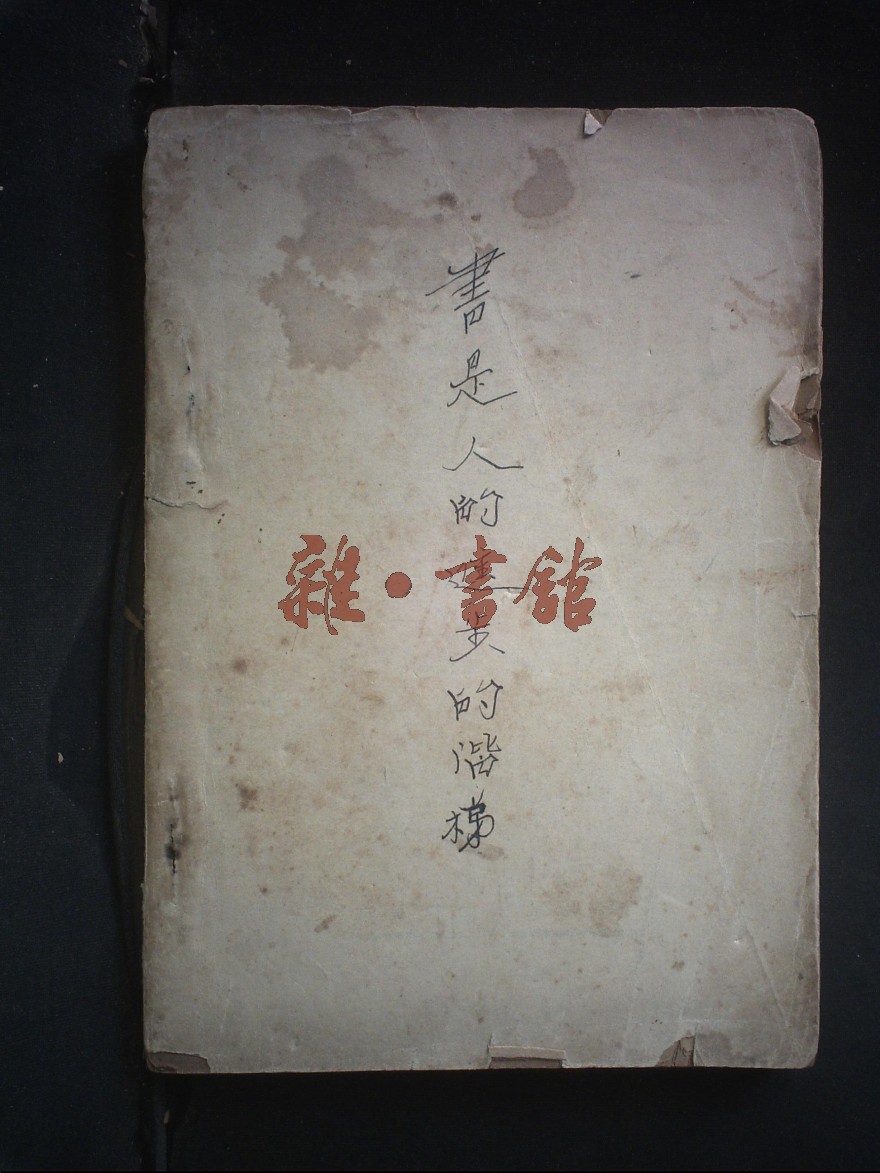 書是人的진步的階梯
雜·書館